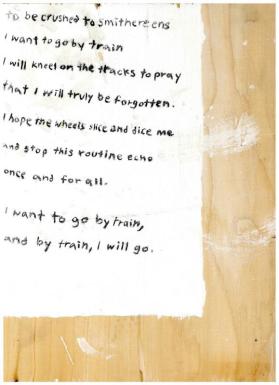 to be crushed to smithereens
I want to go by train
I will kneel on the tracks to pray
that I will truly be forgotten.
I hope the wheels slice and dice me
and stop this routine echo
once and for all.
I want to go by train,
and by train, I will go.